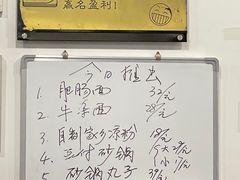 赢名盈利！
今日推出
1. 肥肠面 32/元
2. 牛杂面 28/元
3. 自制家乡凉粉 18/元
4. 豆付砂锅 （大28/元
（小
5 砂锅丸子 37/元